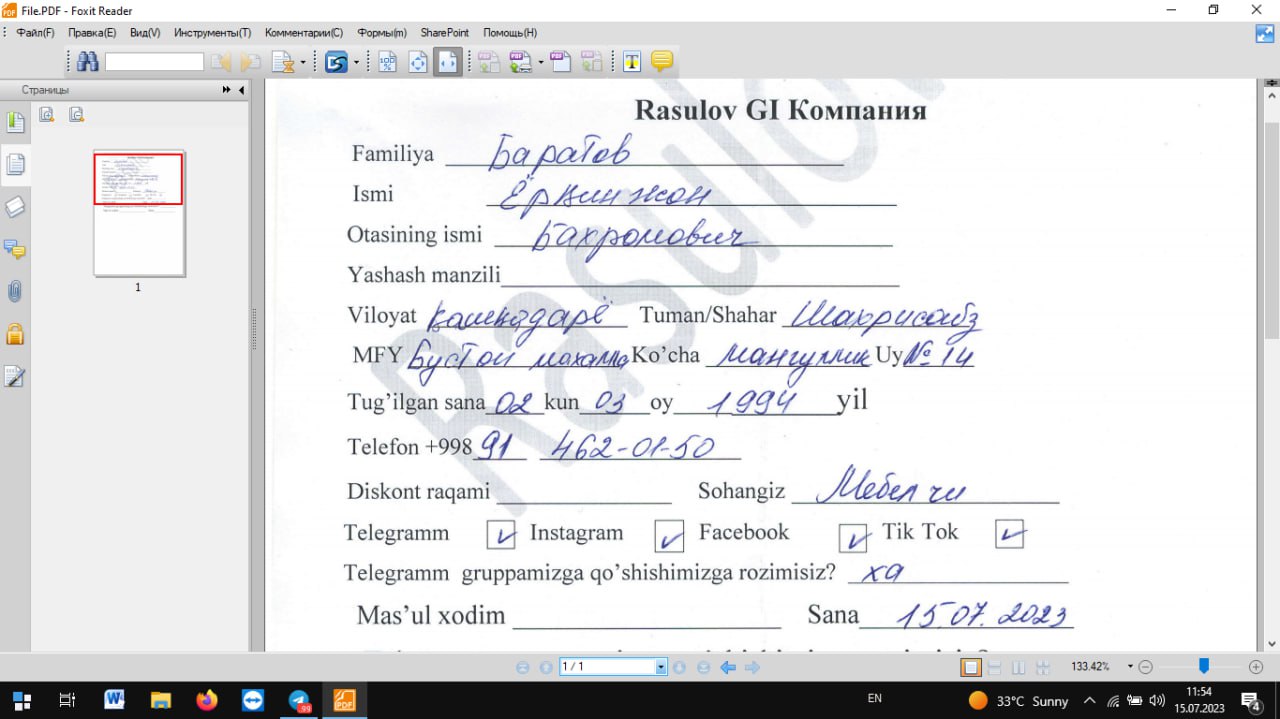 File.PDF - Foxit Reader
Файл(F) Правка(E) Вид(V) Инструменты(T) Комментарии(C) Формы(m) SharePoint Помощь(H)
Страницы
1
Rasulov GI Компания
Familiya Баратов
Ismi Ёркинжон
Otasining ismi Бахромович
Yashash manzili
Viloyat Қашқадарё Tuman/Shahar Шахрисабз
MFY Бустон махалла Ko’cha Мангуллик Uy № 14
Tug’ilgan sana 02 kun 03 oy 1994 yil
Telefon +998 91 462-01-50
Diskont raqami Sohangiz Мебелчи
Telegramm Instagram Facebook Tik Tok
Telegramm gruppamizga qo’shishimizga rozimisiz? ха
Mas’ul xodim Sana 15.07.2023
Rasulov
1 / 1 133.42%
EN 33°C Sunny 11:54
15.07.2023 4